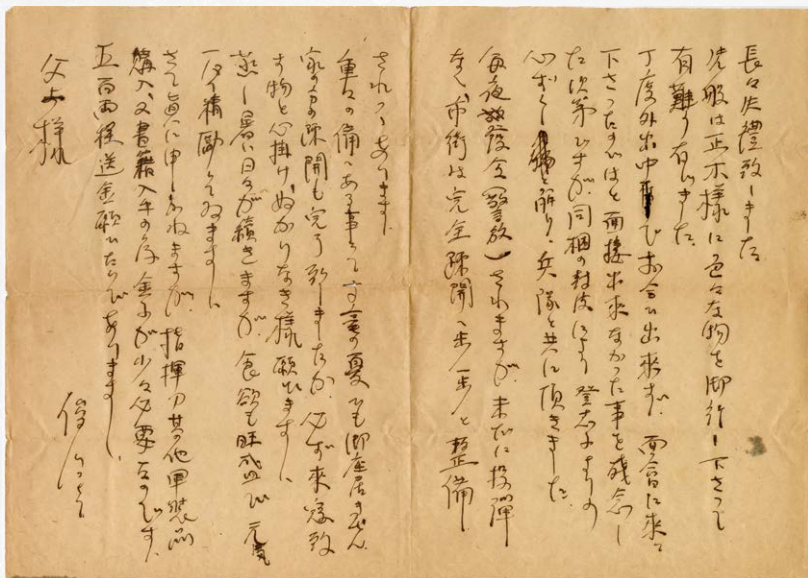 長々失禮致しました
先般は正木様に色々な物を御託し下さって
有難う存じました
丁度外出中でお会ひ出来ず、面會に来て
下さったのにと面接出来なかった事を残念し
た次第ですが、同梱の封皮により登志子よりの
心づくしと解り、兵隊と共に頂きました
毎夜發令(警報)されますが、未だに投弾
なく、市街は完全疎開へ一歩一歩と整備
されつゝあります
重々の備へある事とて寸毫の憂ひも御座居ません
家の方の疎開も完了致しましたか、必ず来襲致
す物と心掛け、ぬかりなき様願ひます
蒸し暑い日々が續きますが、食欲も旺盛で元気
一パイ精勵してゐます
さて真に申しかねますが、指揮刀其の他軍装品
購入、又書籍入手の為金子が少々必要なのです
五百両程送金願ひたいのであります
父上様